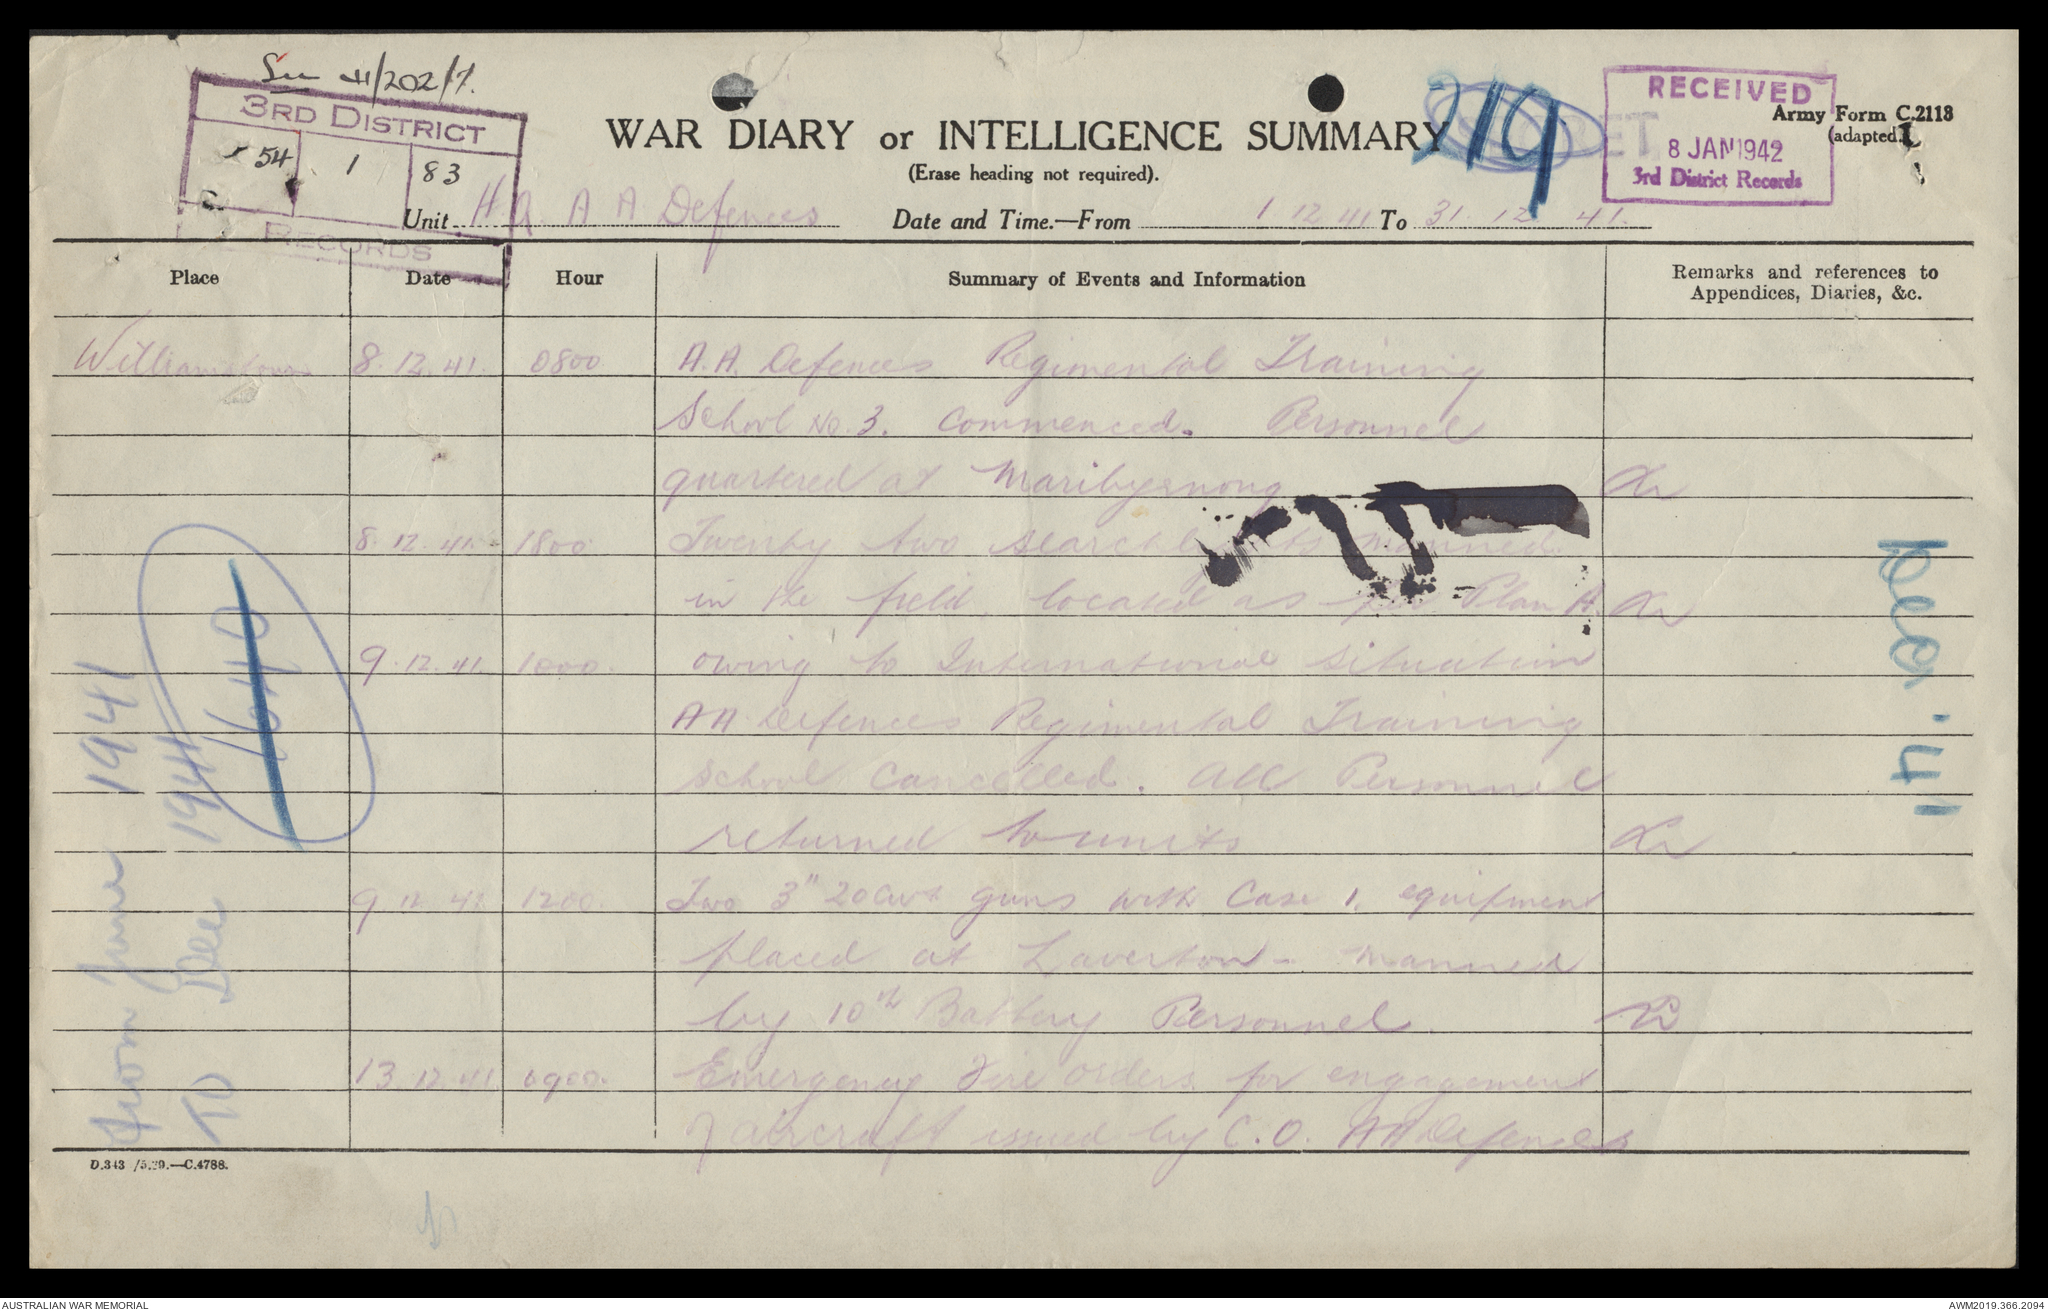 See 41/202/7.
3RD DISTRICT
54 1 83
RECORDS
219
RECEIVED
8 JAN 1942
3rd District Records
Army Form C.2118
(adapted.)
WAR DIARY or INTELLIGENCE SUMMARY
(Erase heading not required).
Unit H.Q. A A Defences Date and Time.—From 1 12 41 To 31. 12 41.
Place Date Hour Summary of Events and Information Remarks and references to
Appendices, Diaries, &c.
Williamstown 8.12.41. 0800 A.A. Defences Regimental Training
School No. 3. commenced. Personnel
quartered at Maribyrnong
8.12.41. 1800 Twenty two searchlights manned
in the field, located as per Plan A.
9.12.41. 1000. owing to International situation
AA Defences Regimental Training
School cancelled. All Personnel
returned to units
9.12.41 1200. Two 3" 20 cwt guns with Case 1. equipment
placed at Laverton - manned
by 10th Battery Personnel.
13.12.41 0900. Emergency Fire orders for engagement
of aircraft issued by C.O. AA Defences
From June 1941
TO Dec 1941
1640
Dec. '41
D.343 /5.39.—C.4788.
AUSTRALIAN WAR MEMORIAL
AWM2019.366.2094